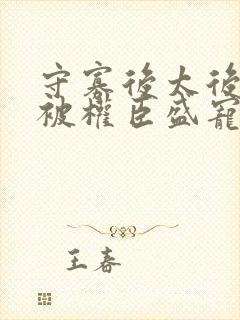 守寡後太後
被權臣盛寵
王春